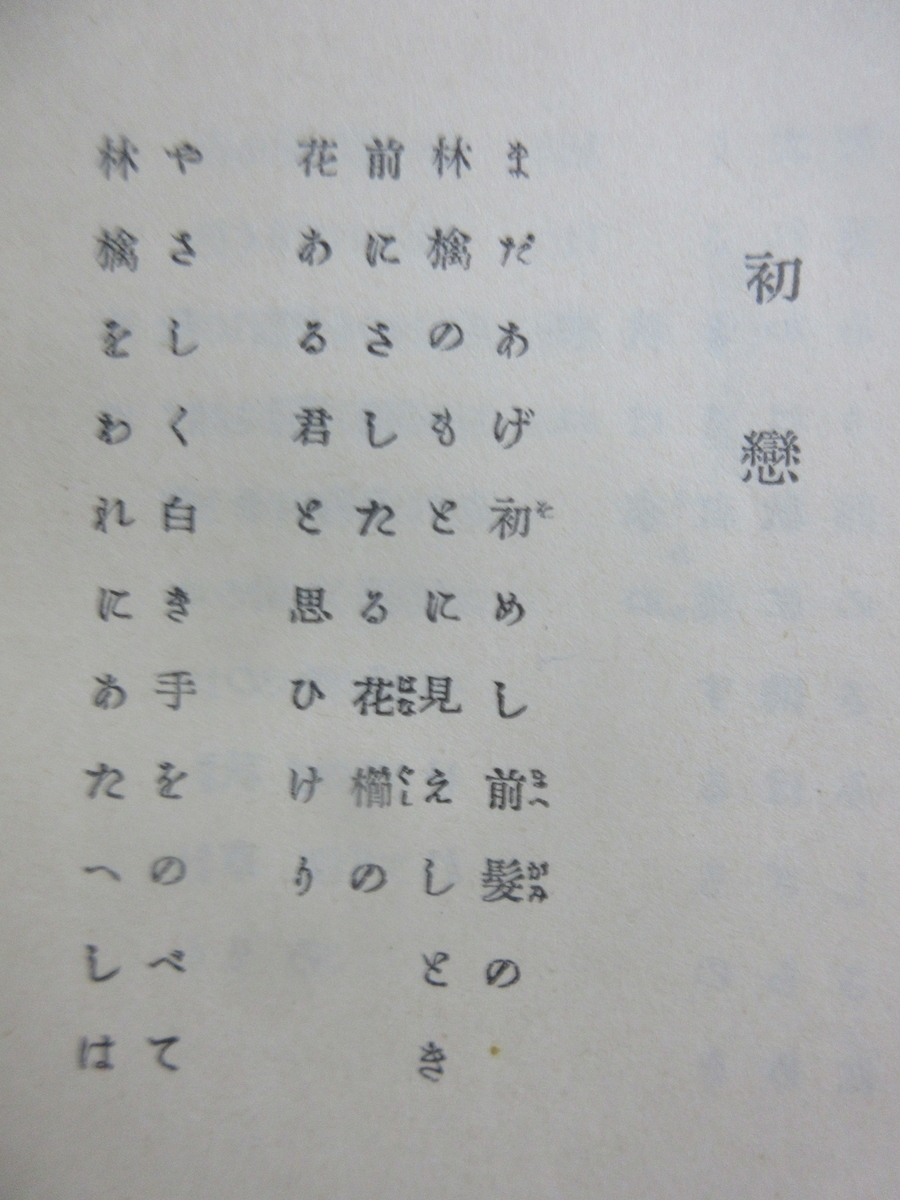 初戀
まだあげ初めし前髮の
林檎のもとに見えしとき
前にさしたる花櫛の
花ある君と思ひけり
やさしく白き手をのべて
林檎をわれにあたへしは